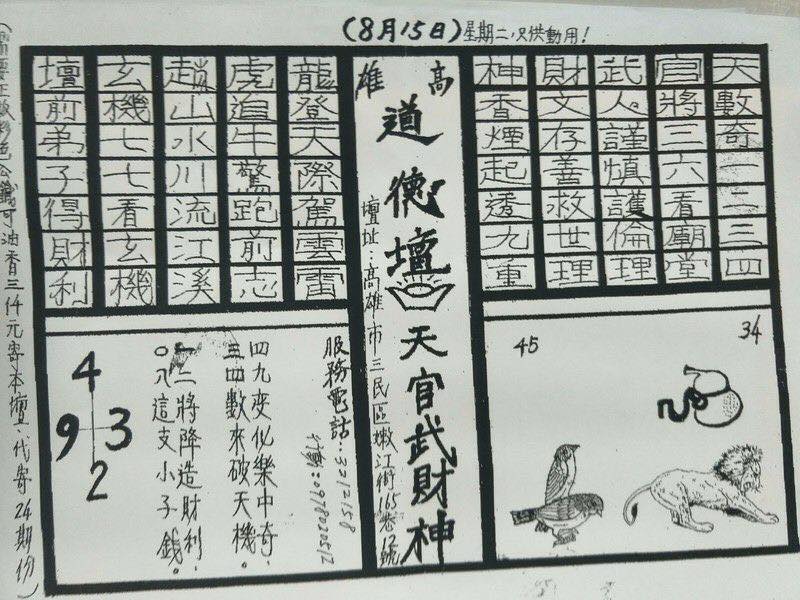 (8月15日)星期二,只供動用!
天數奇一二三四
官將三六看廟堂
武人謹慎護倫理
財文存善救世理
神香煙起透九重
高雄
道德壇
天官武財神
壇址:高雄市三民區嫩江街165巷12號
龍登天際駕雲雷
虎追牛驚跑前志
趙山水川流江溪
玄機七七看玄機
壇前弟子得財利
34
45
服務電話:3212158
四九变化樂中奇,
三四數來破天機。
一二將降造財利,
〇八這支小子錢。
4
9 3
2
可油香三仟元寄本壇.代寄24期份)